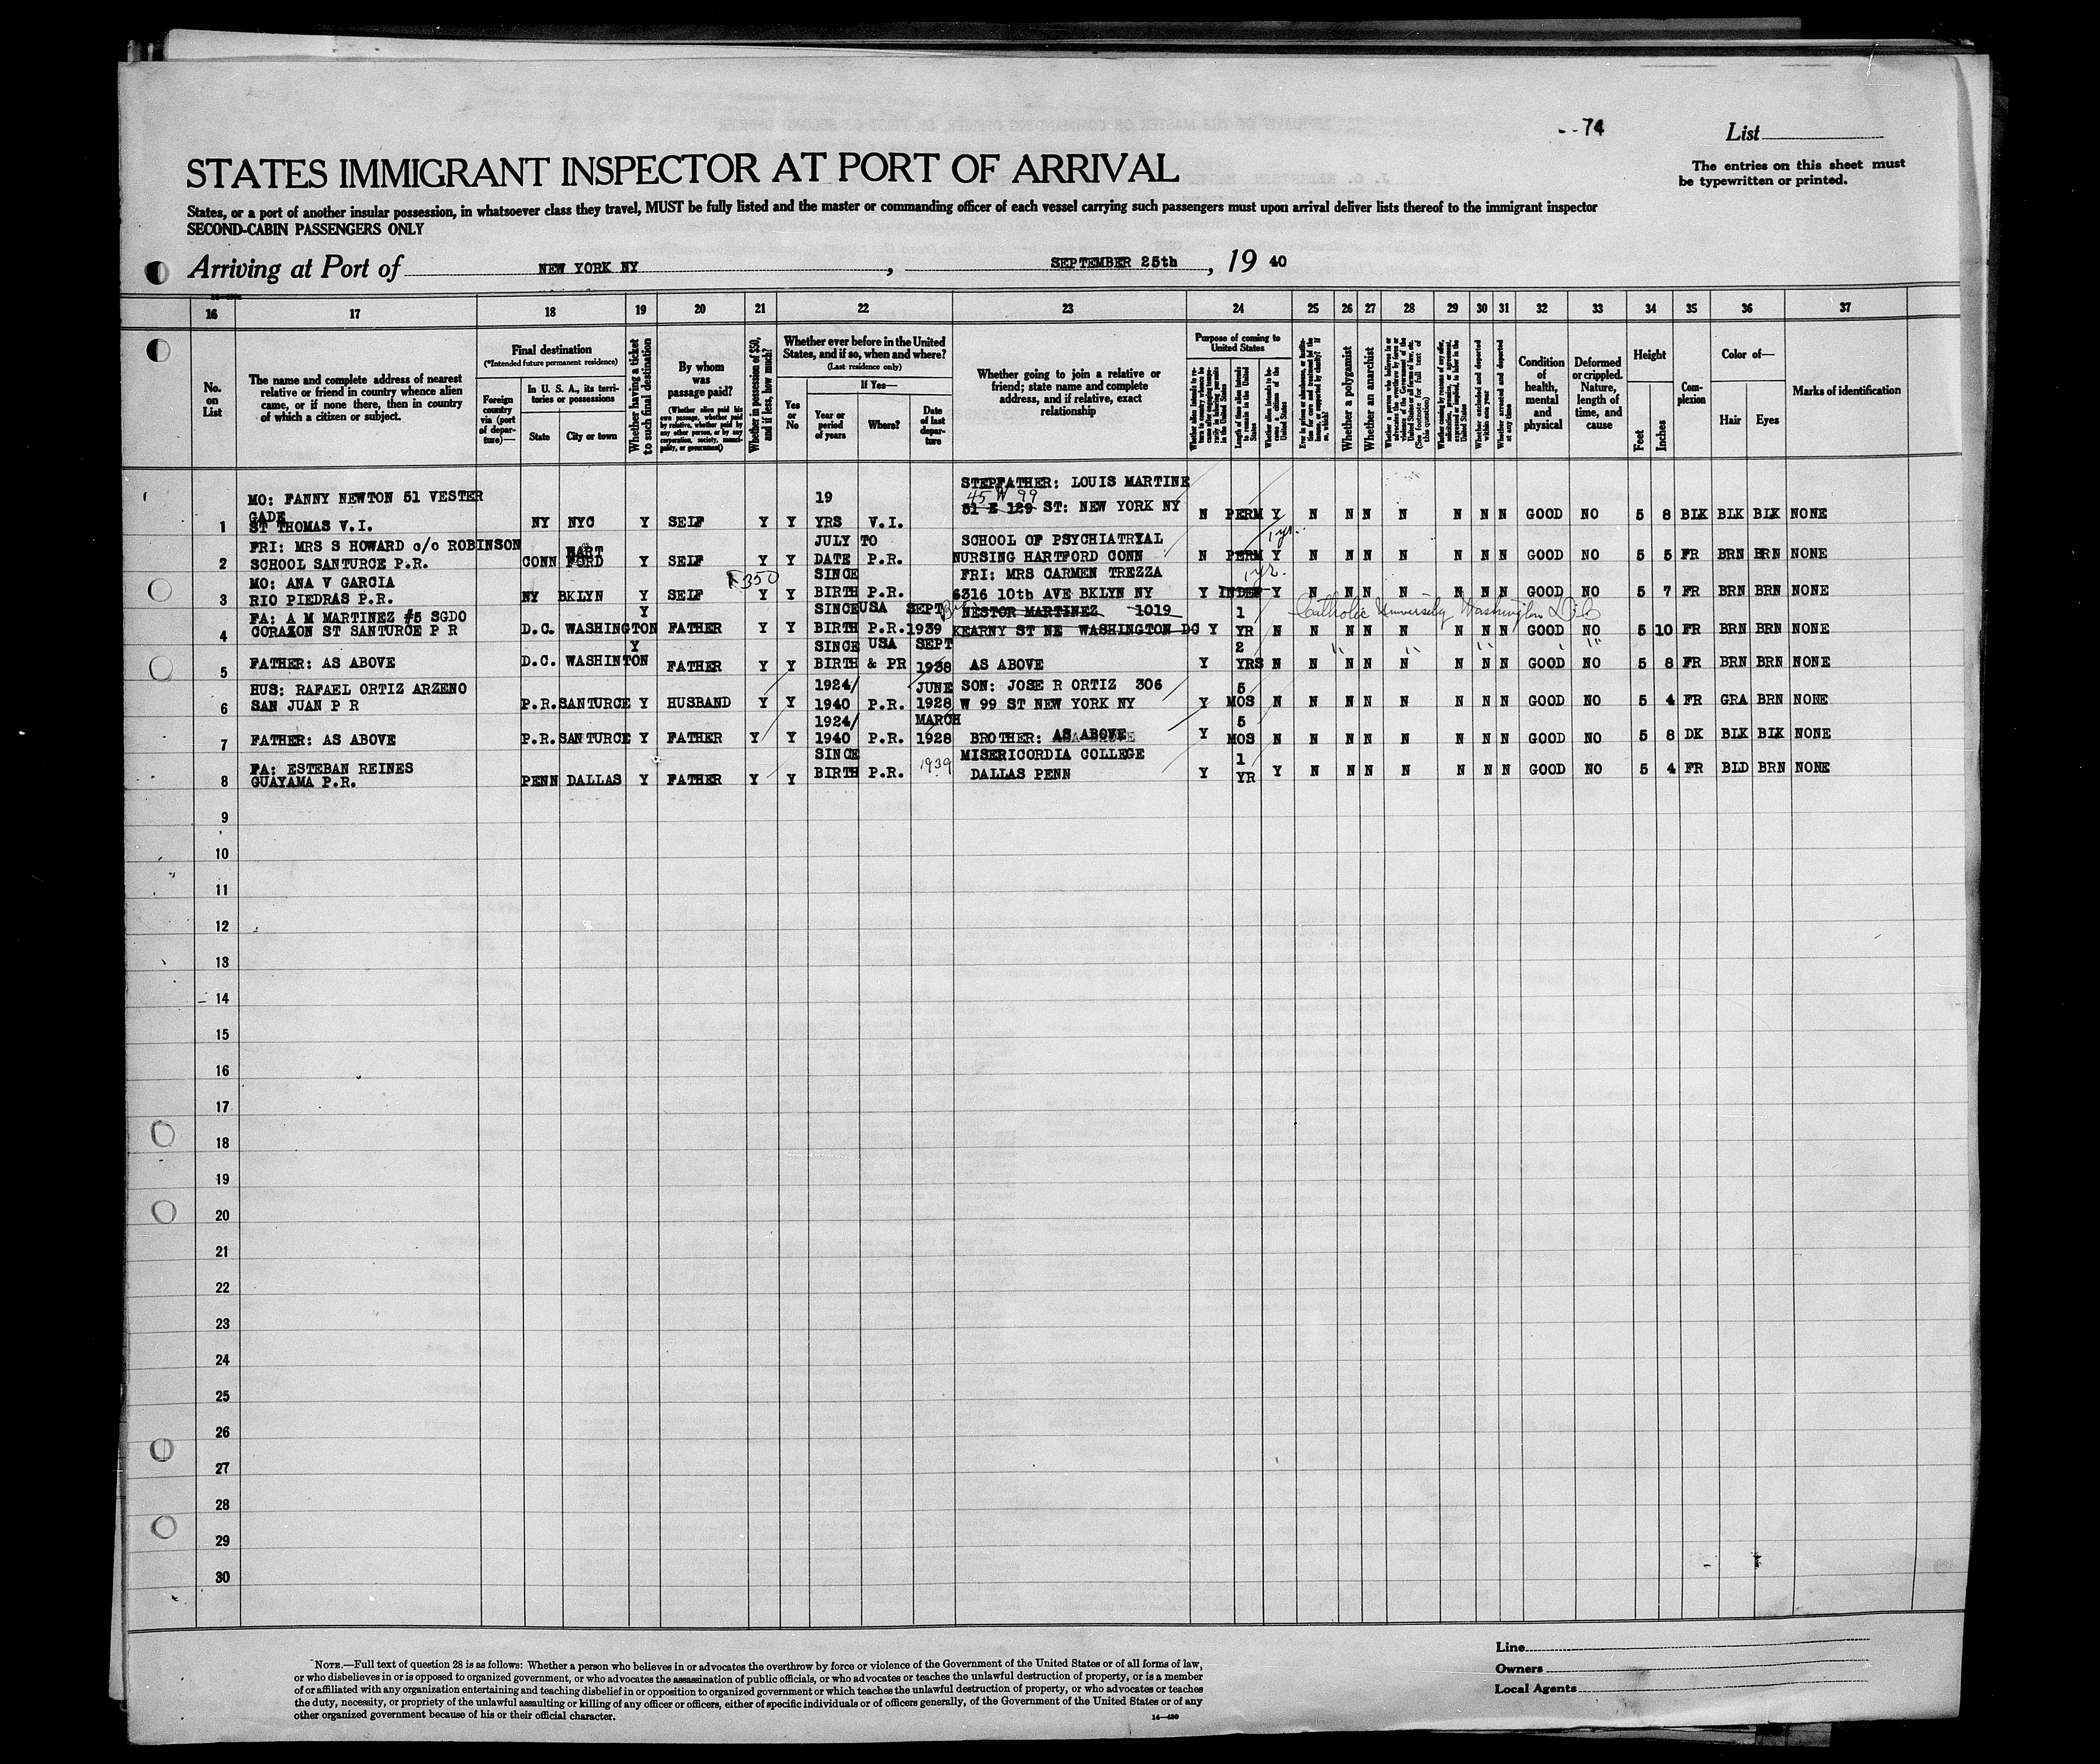 74
List
The entries on this sheet must
be typewritten or printed.
STATES IMMIGRANT INSPECTOR AT PORT OF ARRIVAL
States, or a port of another insular possession, in whatsoever class they travel, MUST be fully listed and the master or commanding officer of each vessel carrying such passengers must upon arrival deliver lists thereof to the immigrant inspector
SECOND-CABIN PASSENGERS ONLY
Arriving at Port of NEW YORK NY, SEPTEMBER 25th, 19 40
16 17 18 19 20 21 22 23 24 25 26 27 28 29 30 31 32 33 34 35 36 37
No. on List
The name and complete address of nearest relative or friend in country whence alien came, or if none there, then in country of which a citizen or subject.
Final destination
(*Intended future permanent residence)
Foreign country via (port of departure)—
In U. S. A., its territories or possessions
State
City or town
Whether having a ticket to such final destination
By whom was passage paid?
(Whether alien paid his own passage, whether paid by relative, whether paid by any other person, or by any corporation, society, municipality, or government)
Whether in possession of $50, and if less, how much?
Whether ever before in the United States, and if so, when and where?
(Last residence only)
Yes or No
If Yes—
Year or period of years
Where?
Date of last departure
Whether going to join a relative or friend; state name and complete address, and if relative, exact relationship
Purpose of coming to United States
Length of time alien intends to remain in the United States
Whether a polygamist
Whether an anarchist
Whether excluded and deported within one year
Whether arrested and deported at any time
Condition of health, mental and physical
Deformed or crippled. Nature, length of time, and cause
Height
Feet
Inches
Complexion
Color of—
Hair
Eyes
Marks of identification
STEPFATHER: LOUIS MARTINE
MO: FANNY NEWTON 51 VESTER 19 45 W 99
GADE 51 E 129 ST: NEW YORK NY
1 ST THOMAS V.I. NY NYC Y SELF Y Y YRS V.I. N PERM Y N N N N N N N GOOD NO 5 8 BLK BLK BLK NONE
FRI: MRS S HOWARD c/o ROBINSON HART JULY TO SCHOOL OF PSYCHIATRYAL 1 yr.
2 SCHOOL SANTURCE P.R. CONN FORD Y SELF Y Y DATE P.R. NURSING HARTFORD CONN N PERM Y N N N N N N N GOOD NO 5 5 FR BRN BRN NONE
MO: ANA V GARCIA 350 SINCE FRI: MRS CARMEN TREZZA 1 yr.
3 RIO PIEDRAS P.R. NY BKLYN Y SELF Y Y BIRTH P.R. 6316 10th AVE BKLYN NY Y INDEF Y N N N N N N N GOOD NO 5 7 FR BRN BRN NONE
FA: A M MARTINEZ #5 SGDO Y SINCE USA SEPT NESTOR MARTINEZ 1019 1 Catholic University Washington D.C
4 CORAZON ST SANTURCE P R D.C. WASHINGTON FATHER Y Y BIRTH P.R. 1939 KEARNY ST NE WASHINGTON DC Y YR N N N N N N N N GOOD NO 5 10 FR BRN BRN NONE
Y SINCE USA SEPT 2
5 FATHER: AS ABOVE D.C. WASHINTON FATHER Y Y BIRTH & PR 1938 AS ABOVE Y YRS N N N N N N N N GOOD NO 5 8 FR BRN BRN NONE
HUS: RAFAEL ORTIZ ARZENO 1924/ JUNE SON: JOSE R ORTIZ 306 5
6 SAN JUAN P R P.R. SANTURCE Y HUSBAND Y Y 1940 P.R. 1928 W 99 ST NEW YORK NY Y MOS N N N N N N N N GOOD NO 5 4 FR GRA BRN NONE
1924/ MARCH 5
7 FATHER: AS ABOVE P.R. SANTURCE Y FATHER Y Y 1940 P.R. 1928 BROTHER: AS ABOVE Y MOS N N N N N N N N GOOD NO 5 8 DK BLK BLK NONE
FA: ESTEBAN REINES SINCE MISERICORDIA COLLEGE 1
8 GUAYAMA P.R. PENN DALLAS Y FATHER Y Y BIRTH P.R. 1939 DALLAS PENN Y YR Y N N N N N N N GOOD NO 5 4 FR BLD BRN NONE
9
10
11
12
13
14
15
16
17
18
19
20
21
22
23
24
25
26
27
28
29
30
Line
Owners
Local Agents
NOTE.—Full text of question 28 is as follows: Whether a person who believes in or advocates the overthrow by force or violence of the Government of the United States or of all forms of law,
or who disbelieves in or is opposed to organized government, or who advocates the assassination of public officials, or who advocates or teaches the unlawful destruction of property, or is a member
of or affiliated with any organization entertaining and teaching disbelief in or opposition to organized government or which teaches the unlawful destruction of property, or who advocates or teaches
the duty, necessity, or propriety of the unlawful assaulting or killing of any officer or officers, either of specific individuals or of officers generally, of the Government of the United States or of any
other organized government because of his or their official character.
14—430